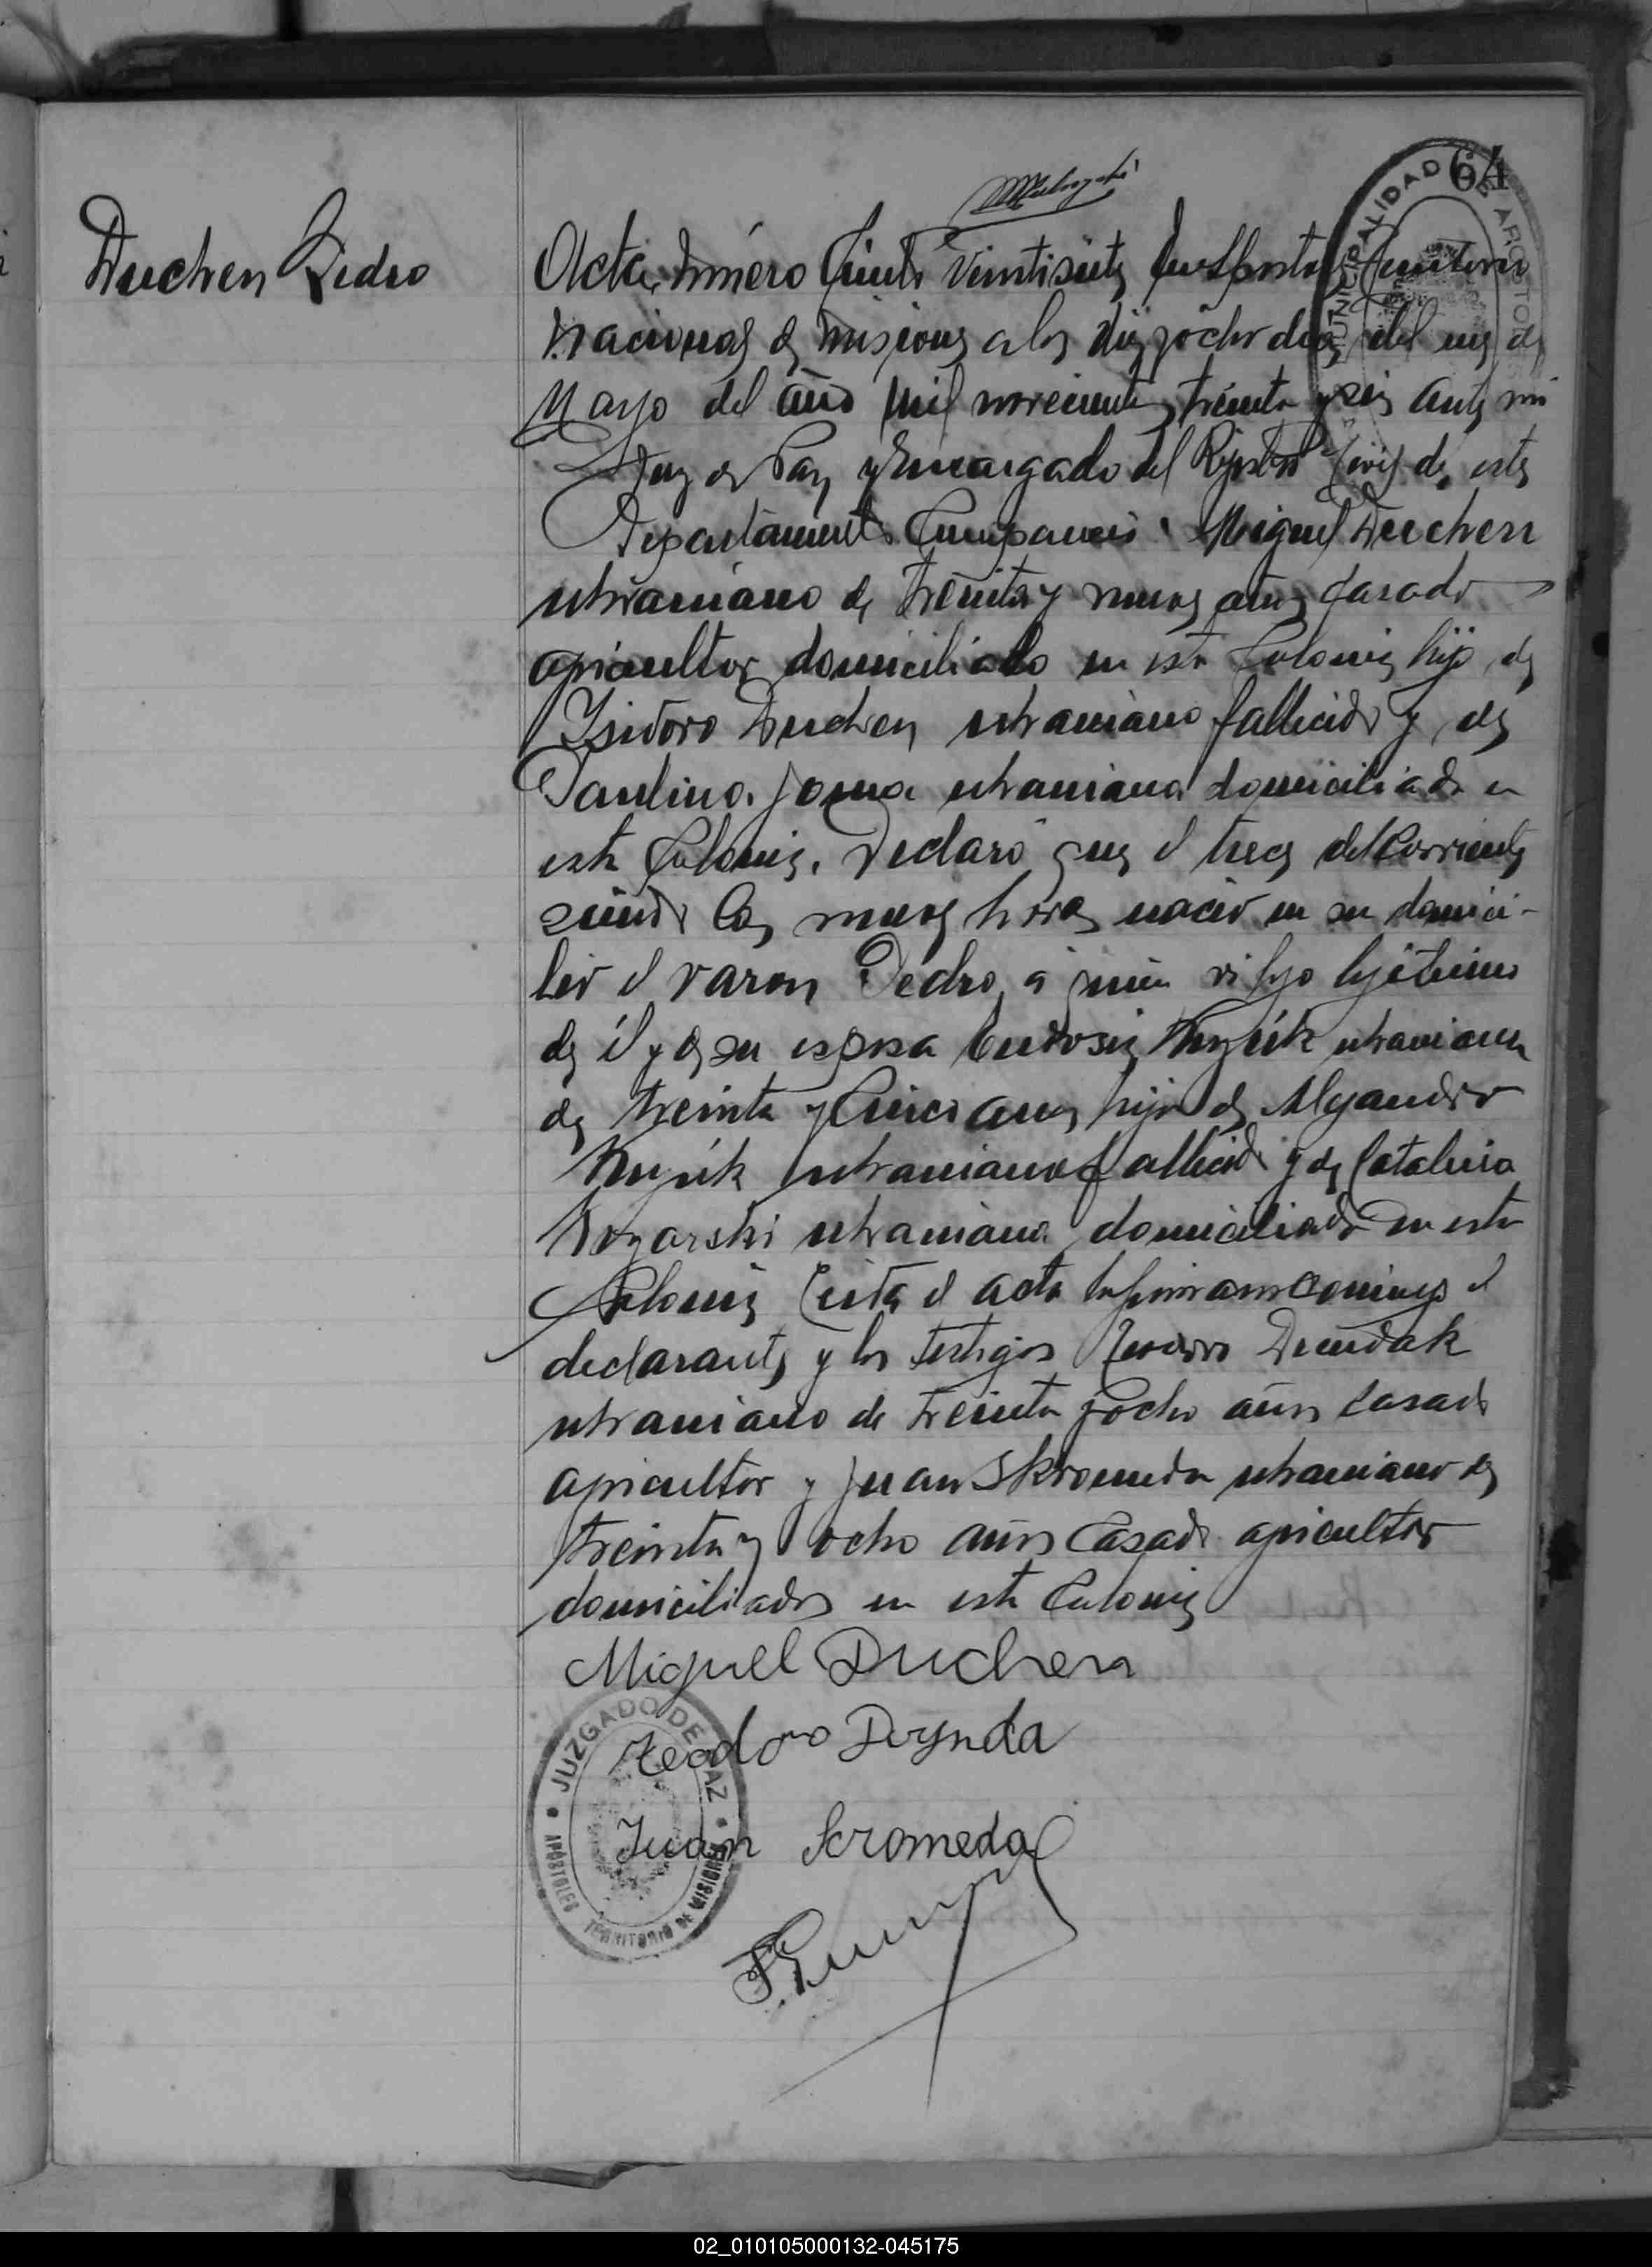 64
MUNICIPALIDAD DE APOSTOLES
Duchen Pedro
Acta número Ciento Veintisiete En Apostoles Territorio
Nacional de Misiones a los diez y ocho dias del mes de
Mayo del año mil novecientos treinta y seis ante mi
Juez de Paz y Encargado del Registro Civil de este
Departamento Compareció Miguel Duchen
ukraniano de treinta y nueve años casado
agricultor domiciliado en esta Colonia hijo de
Isidoro Duchen ukraniano fallecido y de
Paulina ukraniana domiciliada en
esta Colonia. Declaró que el trece del corriente
siendo las nueve horas nació en su domici-
lio el varon Pedro a quien vi hijo lejitimo
de él y de su esposa ukraniana
de treinta y cinco años hija de Alejandro
ukraniano fallecido y de Catalina
ukraniana domiciliada en esta
Colonia Leida el acta la firmaron conmigo el
declarante y los testigos Teodoro
ukraniano de treinta y ocho años casado
agricultor y Juan Skromeda ukraniano de
treinta y ocho años casado agricultor
domiciliados en esta Colonia
Miguel Duchen
Teodoro Dzynda
Juan Scromeda
JUZGADO DE PAZ
APÓSTOLES TERRITORIO DE MISIONES
02_010105000132-045175